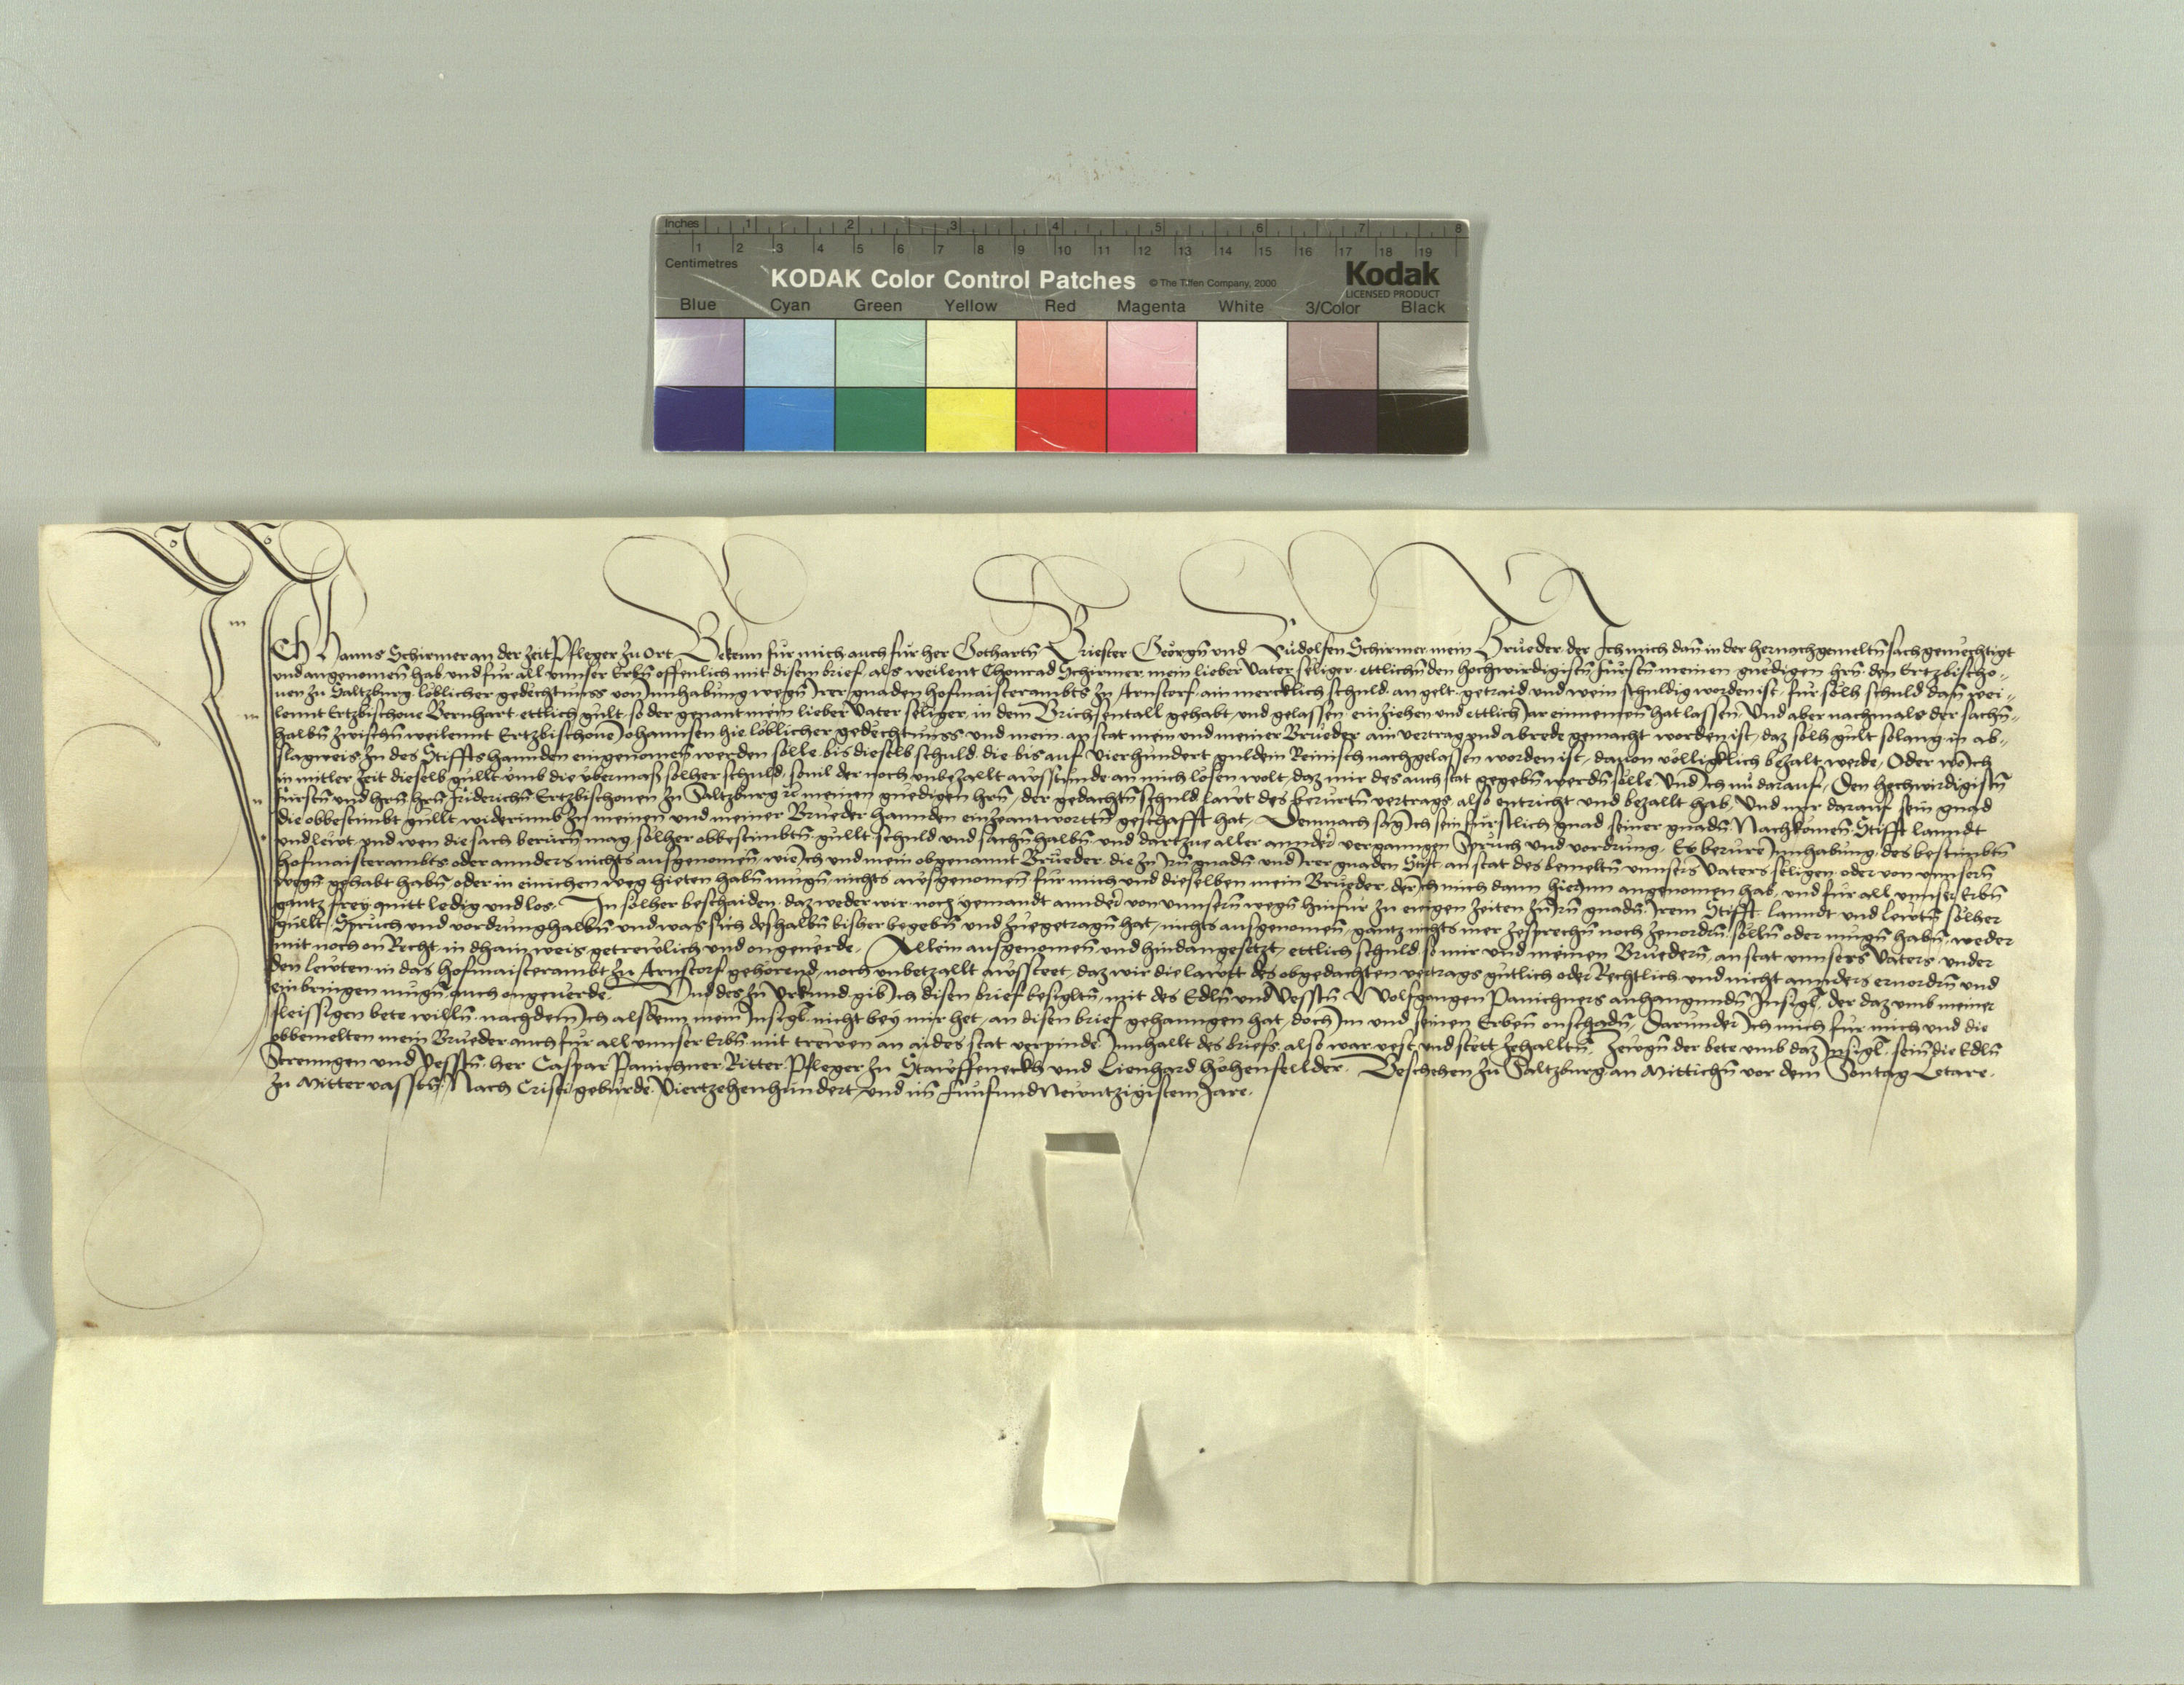 Inches 1 2 3 4 5 6 7 8
1 2 3 4 5 6 7 8 9 10 11 12 13 14 15 16 17 18 19
Centimetres
KODAK Color Control Patches © The Tiffen Company, 2000 Kodak
LICENSED PRODUCT
Blue Cyan Green Yellow Red Magenta White 3/Color Black
Ich Hanns Schirmer an der zeit Pfleger zu Ort Bekenn für mich auch für her Gothartn̄ Briester Georgn̄ und Rudolfen Schirmer mein Brueder der Ich mich dan̄ in der hernachgemeltn̄ sach gemechtigt
und angenomen̄ hab und für all unnser Erbn̄ offenlich mit disem brief als weilent Chonrad Schirmer mein lieber Vater seliger ettlichn̄ den hochwirdigistn̄ fürstn̄ meinen gnedigen hrn̄ den Ertzbischo-
uen zu Saltzburg löblicher gedechtnuss von Innhabung wegn̄ Irer gnaden hofmaisterambts zu Arnstorf ain mercklich schuld an gelt getraid und wein schuldig worden ist, für solh schuld dan̄ wei-
lennt Ertzbischoue Bernhart ettlich gült so der genant mein lieber Vater seliger in dem Brichsentall gehabt und gelassen einziehen und ettlich Jar einnemen̄ hat lassen Und aber nachmals der sachn̄
halbn̄ zwischn̄ weilennt Ertzbischoue Johannsen hie löblicher gedechtnuss und mein an stat mein und meiner Brueder ain vertrag und abrede gemacht worden ist, daz solh gült solang in ab-
slagweis zu des Stiffts hannden eingenomen̄ werden sölle bis dieselb schuld die bis auf Vierhundert guldein Reinisch nachgelassen worden ist, dauon völligklich bezalt werde, Oder wo Ich
in mitler zeit dieselb gullt umb die übermass solher schuld souil der noch unbezallt ausstunde an mich lösen wolt, daz mir des auch stat gegebn̄ werdn̄ sölle Und Ich nu darauf, Den hochwirdigistn̄
fürstn̄ und hrn̄ hrn̄ Friderichn̄ Ertzbischouen zu Saltzburg meinen gnedigen hrn̄, der gedachtn̄ schuld laut des berurtn̄ vertrags also entricht und bezallt hab, Und mir darauf sein gnad
die obbestimbt gullt widerumb zu meinen und meiner Brueder hannden einzeantworttn̄ geschafft hat, Demnach sag Ich sein fürstlich gnad seiner gnadn̄ Nachkomen̄ Stifft lanndt
und leut und wen die sach berurn̄ mag solher obbestimbtn̄ gullt schuld und sachn̄halbn̄ und dartzue aller annder vergangen Spruch und vordrung, Es berure Innhabung des bestimbtn̄
hofmaisterambts oder annders nichts ausgenomen̄, wie Ich und mein obgenannt Brueder die zu Irn̄ gnadn̄ und Irer gnaden Stift an stat des bemeltn̄ unnsers Vaters seligen oder von unnsern̄
wegn̄ gehabt habn̄ oder in einichen weg hieten habn̄ mugn̄ nichts ausgenomen̄ für mich und dieselben mein Brueder der Ich mich dann hierinn angenomen hab und für all unnser Erbn̄
gantz frey quitt ledig und los. In solher beschaiden daz weder wir noch yemandt annder von unnsern̄ wegn̄ hinfur zu ewigen zeiten zu Irn̄ gnadn̄ Irem Stifft lanndt und leutn̄ solher
gullt Spruch und vordrunghalbn̄ und was sich deshalbn̄ bisher begebn̄ und zuegetragn̄ hat, nichts ausgenomen̄, gantz nichts mer zesprechn̄ noch zeuordrn̄ solln̄ oder mugn̄ habn̄, weder
mit noch on Recht in dhain weis getreulich und on geuerde. Allein ausgenomen̄ und hindangesetzt ettlich schuld so mir und meinen Bruedern̄, an stat unnsers Vaters under
den leuten in das hofmaisterambt zu Arnstorf gehörend, noch unbetzallt aussteet, daz wir die lautt des obgedachten vertrags gutlich oder Rechtlich und nicht annders eruordrn̄ und
einbringen mugn̄ auch ongeuerde. Und des zu Urkund gib Ich disen brief besigltn̄, mit des Edln̄ und Vesstn̄ Wolfgangen Panichners anhangundn̄ Insigl, der daz umb meiner
fleissigen bete willn̄ nachdem Ich alsdenn mein Insigl nicht bey mir het, an disen brief gehanngen hat, doch Im und seinen Erben̄ onschadn̄, Darunder Ich mich für mich und die
obbemelten mein Brueder auch für all unnser Erbn̄ mit treuen an aides stat verpinde Innhallt des briefs also war vest und stett zehalltn̄. Zeugn̄ der bete umb daz Insigl sein̄ die Edln̄
Strenngen und Vesstn̄ her Caspar Panichner Ritter Pfleger zu Stauffenerkh und Lienhard hohenfellder. Beschehen zu Saltzburg an Mittichn̄ vor dem Sontag Letare
zu Mittervassten̄ Nach Cristi geburde Viertzehenhundert und im funfundneuntzigistem Jare.